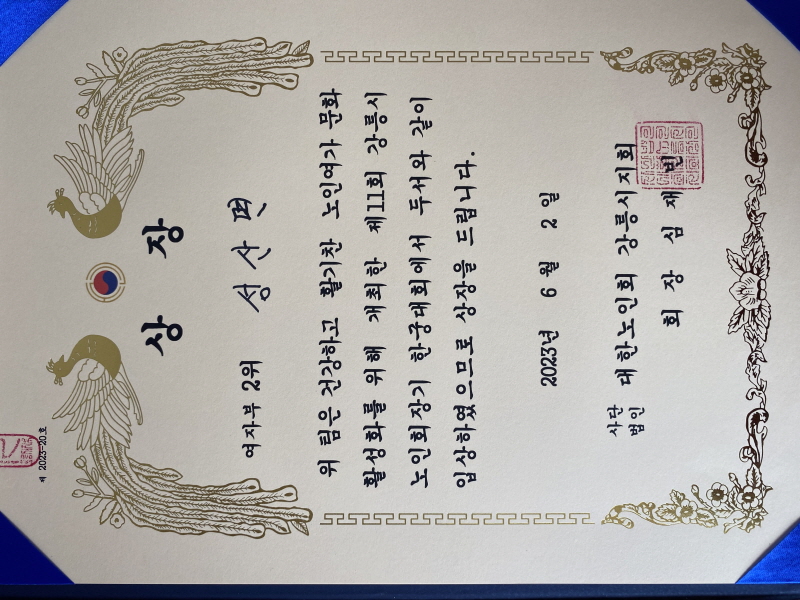 제 2023-20호
상 장
여자부 2위
성산면
위 팀은 건강하고 활기찬 노인여가 문화
활성화를 위해 개최한 제11회 강릉시
노인회장기 한궁대회에서 두서와 같이
입상하였으므로 상장을 드립니다.
2023년 6 월 2 일
사단법인 대한노인회 강릉시지회
회 장 심 재 빈